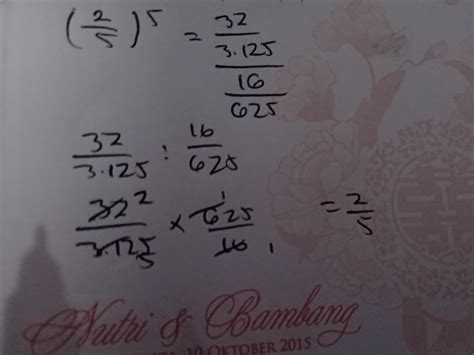 (2/5)^5 = 32/3.125
16/625
32/3.125 : 16/625
32 2/3.125 5 × 625 1/16 1 = 2/5
Nutri & Bambang
10 OKTOBER 2015